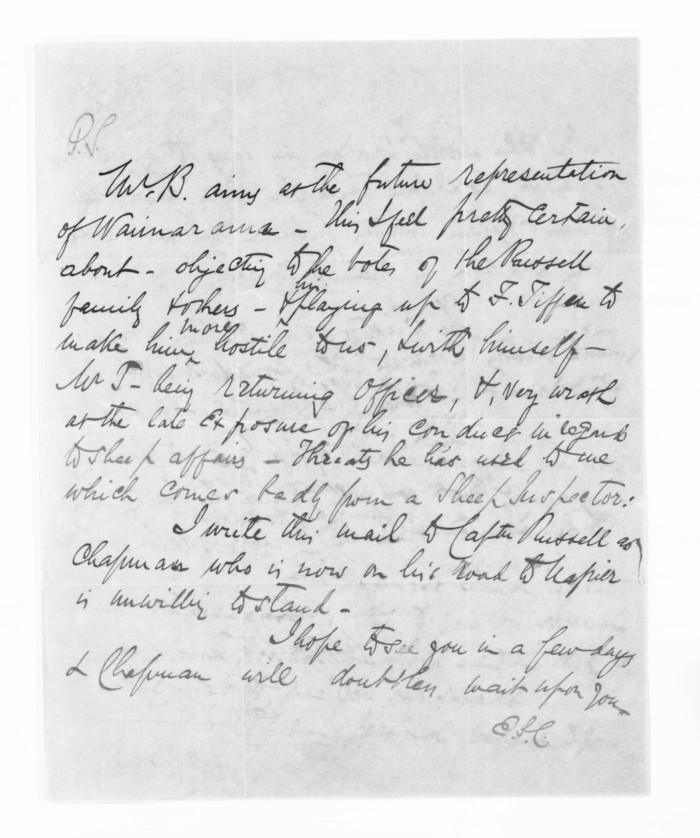 P.S.
Mr. B. aims at the future representation
of Waimarama - this I feel pretty certain,
about - objecting to the votes of the Russell
family & others - & his playing up to F. Tiffen to
make him more hostile to us, & with himself -
Mr T - being returning Officer, &, very wrath
at the late Exposure of his conduct in regard
to sheep affairs - threats he has used to me
which comes badly from a Sheep Inspector:
I write this mail to Captn Russell as
Chapman who is now on his road to Napier
is unwilling to stand -
I hope to see you in a few days
& Chapman will doubtless wait upon you